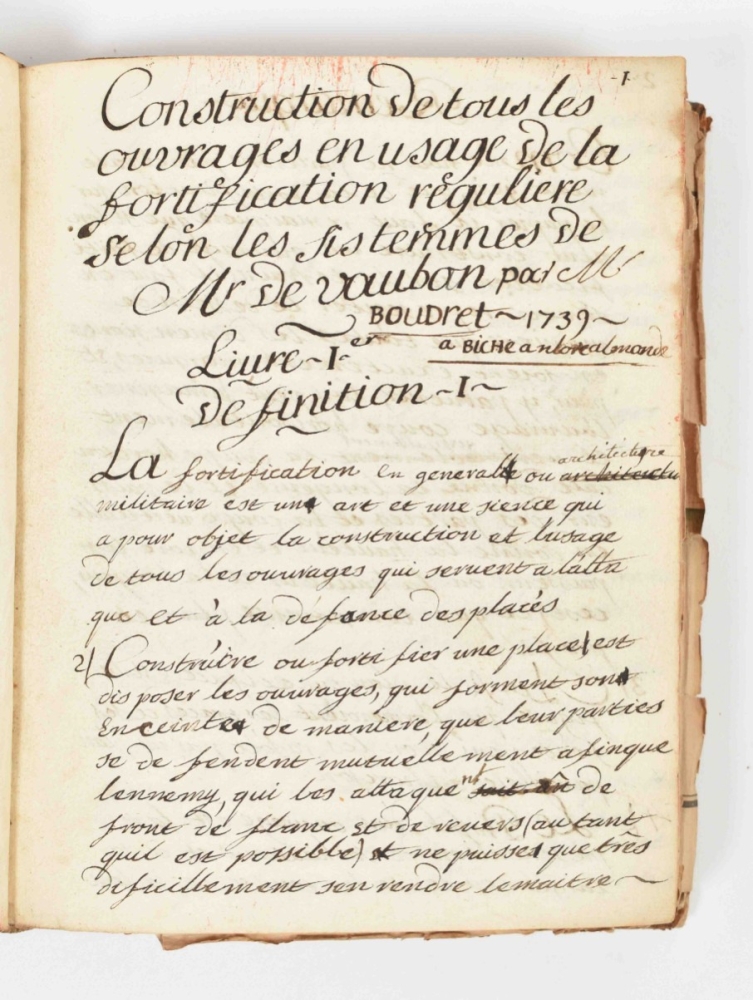 -1-
Construction De tous les
ouvrages en usage De la
fortification réguliere
selon les sistemmes De
Mr De vauban par Mr
BOUDRet ~ 1739 ~
a BICHe
Liure ~ I er
Definition ~ I ~
La fortification en generalle ou architecture
militaire est une art et une sience qui
a pour objet la construction et lusage
de tous les ouuvrages qui seruent a latta
que et à la défance des placés
2) Construire ou forti fier une place, est
dis poser les ouuvrages, qui forment sont
Enceinte de maniere, que leur parties
se de fendent mutuellement afinque
lennemy, qui les attaque de
front de flanc et de reuers (autant
quil est possible) ne puisse que très
dificillement sen rendre lemaitre ~